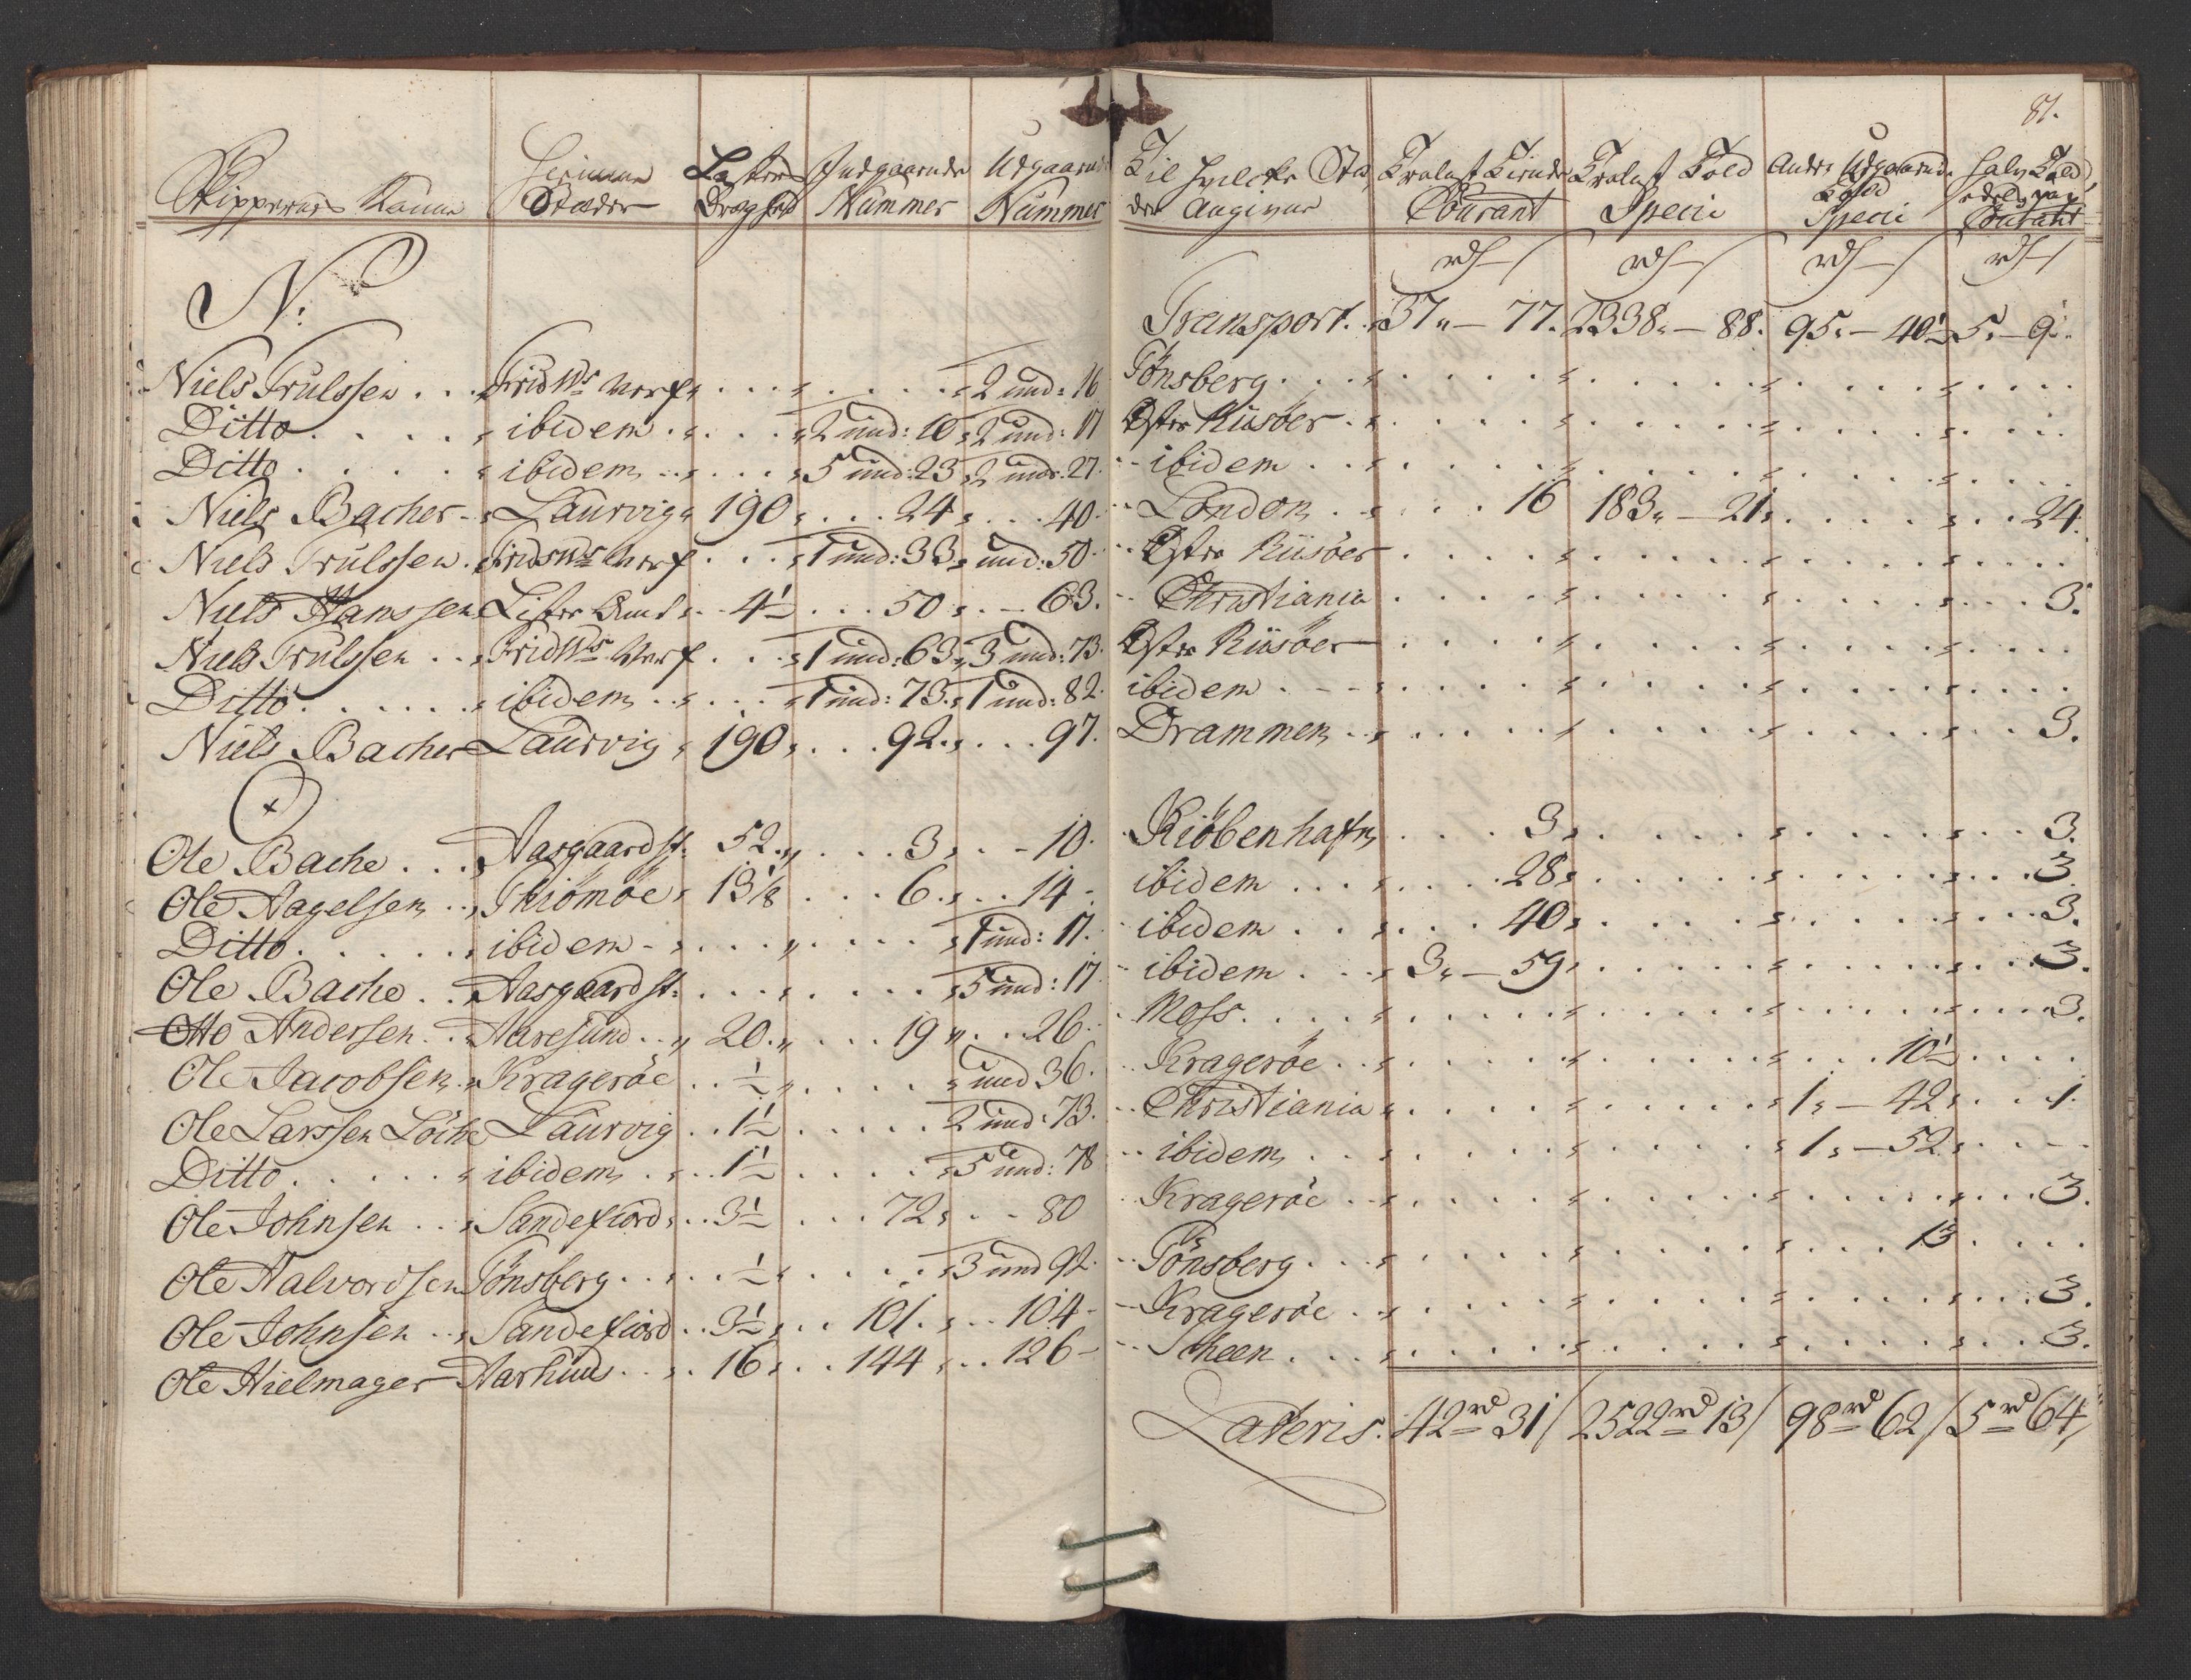 87.
Skippernes Naune | Hiemme Stæder | Lesters Drægted | Indgaaende Nummer | Udgaaende Nummer | Til hvilcke Stæder Angivne | Trælast Tiende Courant | Trælast Told Specie | Andre Udgaaende Told Specie | Courant
rd ſ | rd ſ | rd ſ | rd ſ
N:
Transport. . 37 „ — 77. 2338 „ — 88. 95 „ — 40½ 5. — 9.
Niels Trulssen . . Frid Ws Værf . . . . 2 und: 16 Tönsberg . . .
Ditto . . . . ibidem . . . 2 und: 16 2 und: 17 Öster Riisöer . .
Ditto . . . . ibidem . . . 5 und: 23 2 und: 27. ibidem . . .
Niels Bacher Laurvig 190 . . . 24 . . . 40. London . . . 16 183 „ — 21 . . . . 24.
Niels Trulssen . Frids Ws Værf . . . 1 und: 33 und: 50. Öster Riisöer . . .
Niels Hanssen Lister Amt . . 4½ . . . 50 . . 63. Christiania . . . 3.
Niels Trulssen . . Frid Ws Værf . . . 1 und: 63 3 und: 73. Öster Riisöer . . .
Ditto . . . . ibidem . . . 1 und: 73. 1 und: 82. ibidem . . .
Niels Bacher Laurvig 190 . . . 92 . . . 97. Drammen . . . 3.
O
Ole Bache . . . Aasgaardst: 52 . . . 3 . . 10. Kiöbenhafn . . . 3 . . . 3.
Ole Aagelsen . . Thiömöe 13⅛ . . . 6 . . . 14. ibidem . . . 28 . . . 3.
Ditto . . . . ibidem . . . . 1 und: 17. ibidem . . . 40 . . . 3.
Ole Bache . . Aasgaardst: . . . . 5 und: 17 ibidem . . . 3 „ — 59 . . . 3.
Otto Andersen . . Naresund . . 20 . . . 19 . . . 26. Moss . . . 3.
Ole Jacobsen . Kragerøe . . ½ . . . und 36. Kragerøe . . . 10½ . . .
Ole Larssen Laurvig . . 1½ . . . 2 und: 73. Christiania . . . 1 „ — 42 . . . 1.
Ditto . . . . ibidem . . 1½ . . . 5 und: 78 ibidem . . . 1 „ — 52 . . .
Ole Johnsen . . Sandefiord . . 3½ . . . 72 . . 80 Kragerøe . . . 3.
Ole Halvordsen Tönsberg . . . ½ . . . 3 und 92. Tönsberg . . . 13 . . .
Ole Johnsen . . Sandefiord . . 3½ . . 101 . . . 104 Kragerøe . . . 3.
Ole Hielmager Aarhuus . . . 16 . . 144 . . . 126 Scheen . . . 3.
Lateris. 42 rd 31 ſ 2522 rd 13 ſ 98 rd 62 ſ 5 rd 64 ſ